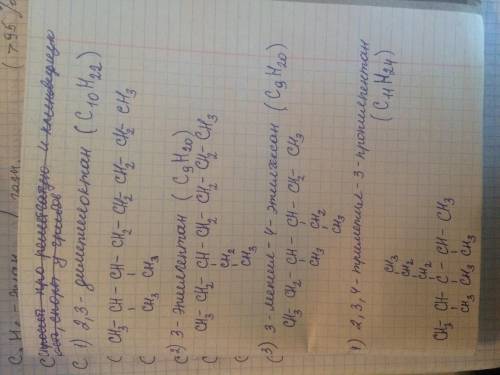 (>95%
1) 2,3-диметилоктан (C10H22)
CH3-CH-CH-CH2-CH2-CH2-CH2-CH3
CH3 CH3
2) 3-Этилгептан (C9H20)
CH3-CH2-CH-CH2-CH2-CH2-CH3
CH2
CH3
3) 3-метил-4-этилгексан (C9H20)
CH3-CH2-CH-CH-CH2-CH3
CH3 CH2
CH3
4) 2,3,4-триметил-3-пропилпентан
(C11H24)
CH3
CH2
CH2
CH3-CH-C-CH-CH3
CH3 CH3 CH3